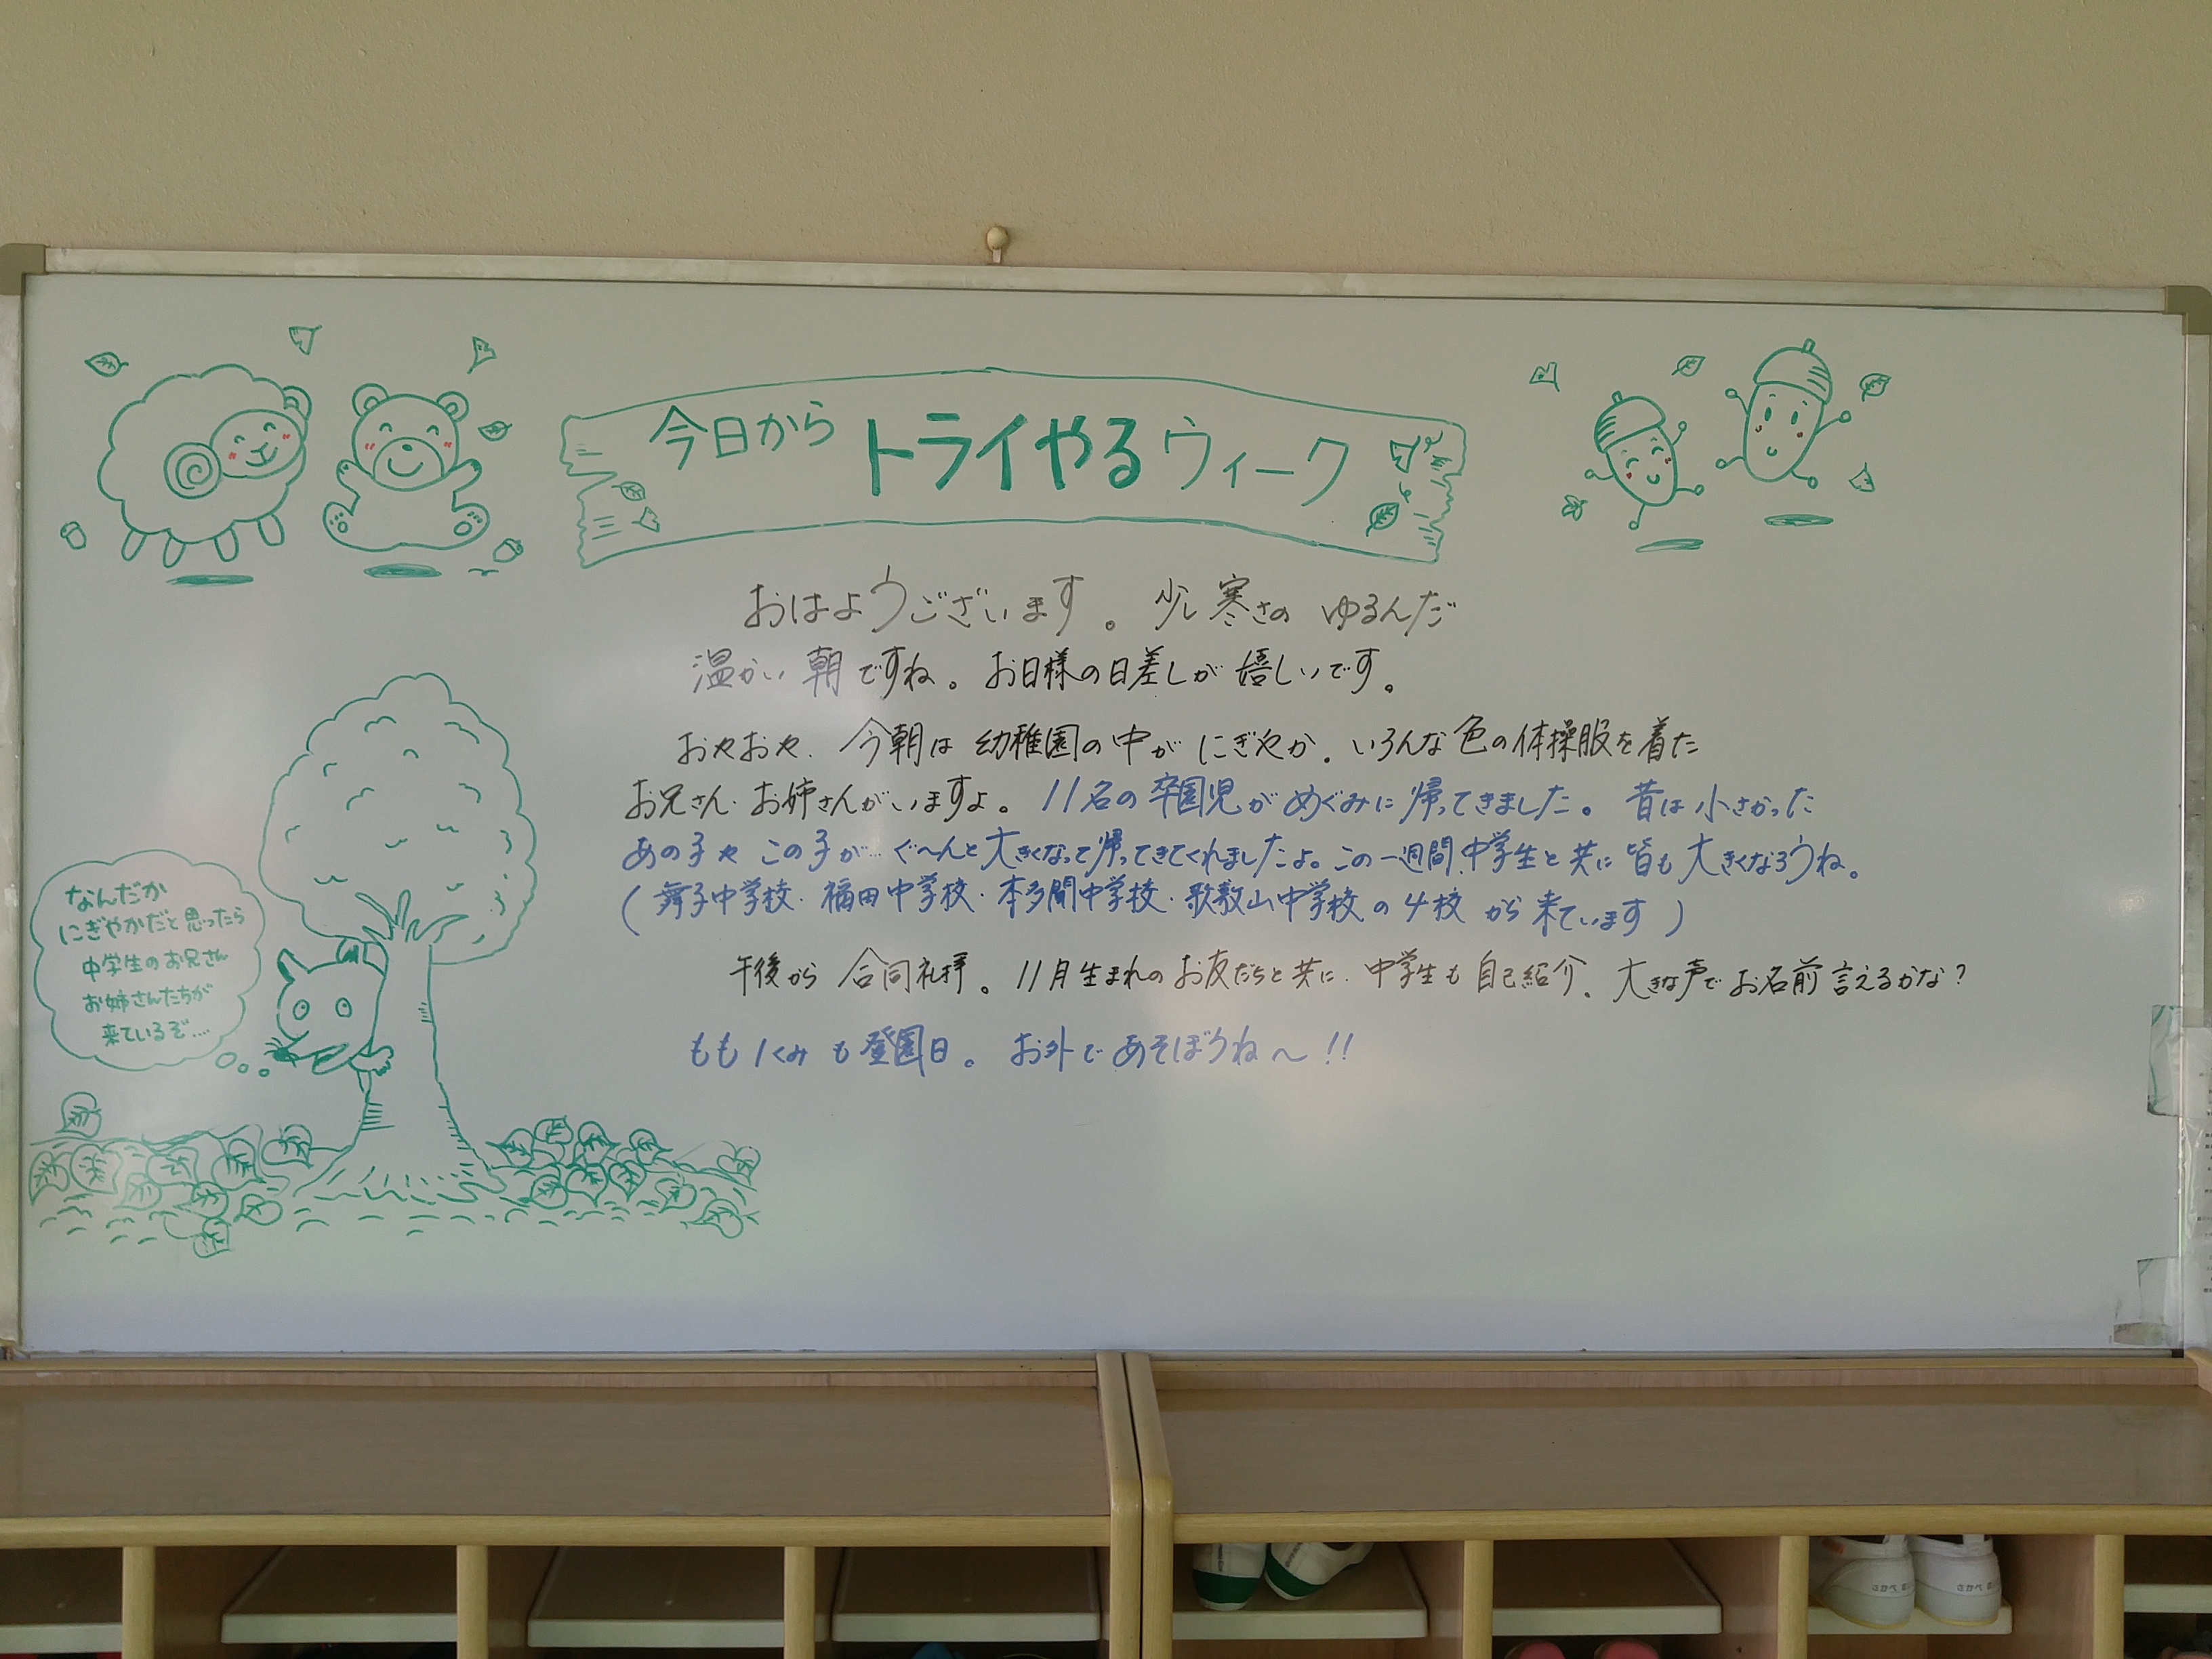 今日から トライやるウィーク
おはようございます。少し寒さの ゆるんだ
温かい朝ですね。お日様の日差しが嬉しいです。
おやおや、今朝は幼稚園の中がにぎやか。いろんな色の体操服を着た
お兄さん、お姉さんがいますよ。11名の卒園児がめぐみに帰ってきました。昔は小さかった
あの子やこの子が… ぐ〜んと大きくなって帰ってきてくれましたよ。この一週間、中学生と共に皆も大きくなろうね。
(舞子中学校・福田中学校・本多聞中学校・歌敷山中学校の4校から来ています)
午後から合同礼拝。11月生まれのお友だちと共に、中学生も自己紹介。大きな声でお名前言えるかな?
もも1くみも登園日。お外であそぼうね〜!!
なんだか
にぎやかだと思ったら
中学生のお兄さん
お姉さんたちが
来ているぞ....
さかべ
さかべ